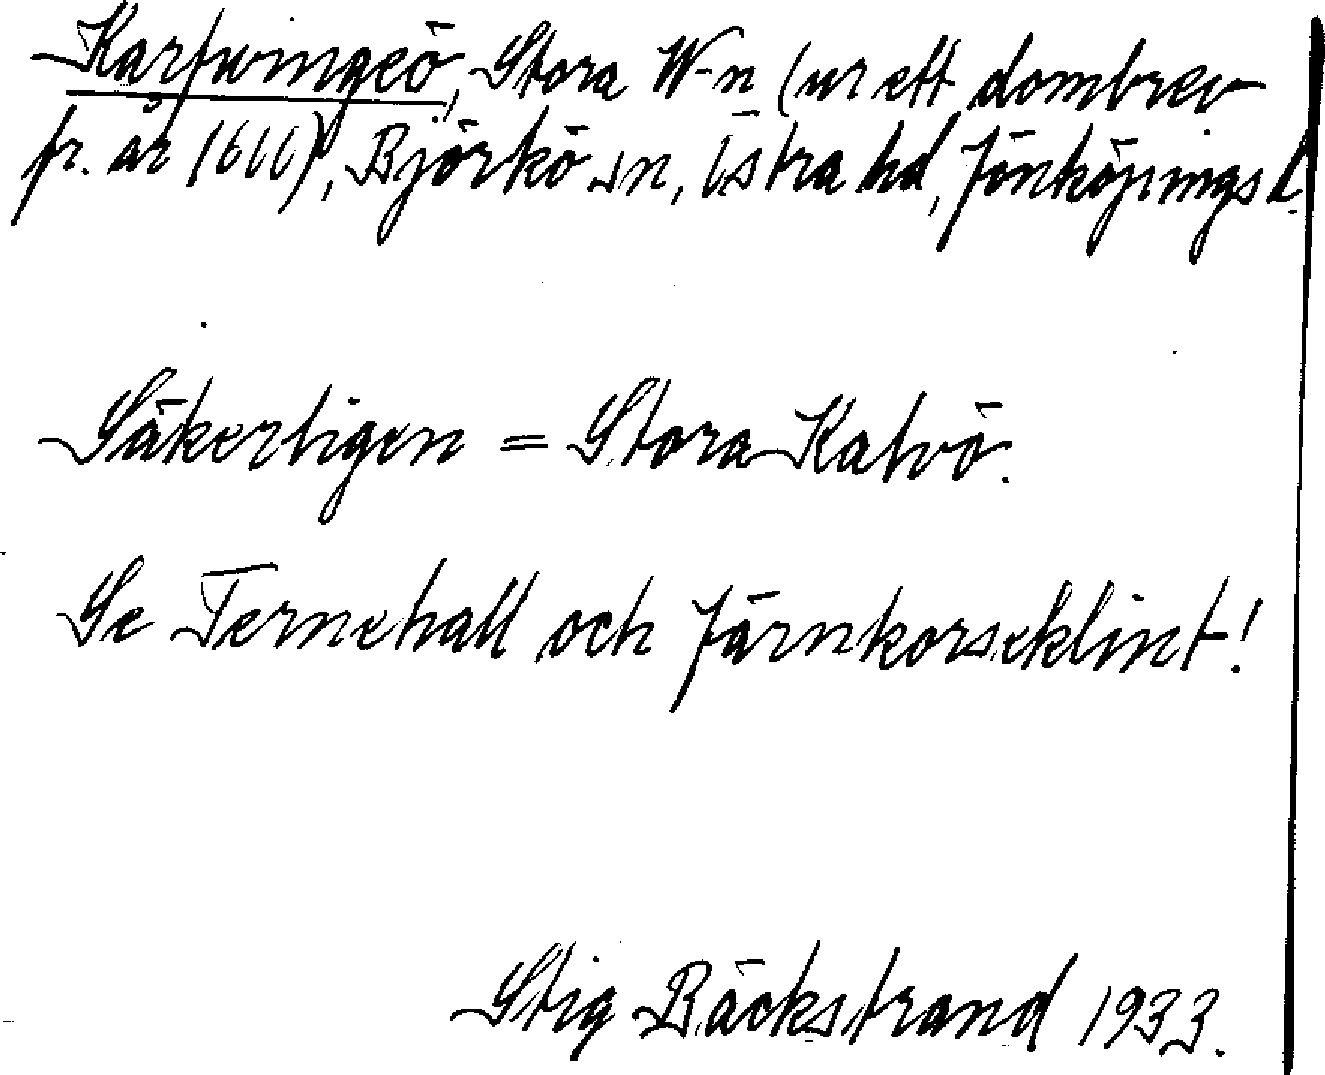 Karfwingeö, Stora W-n (ur ett dombrev
fr. år 1610), Björkö sn, Östra hd, Jönköpings l.
Säkerligen = Stora Kalvö.
Se Ternehall och Järnkorseklint!
Stig Bäckstrand 1933.